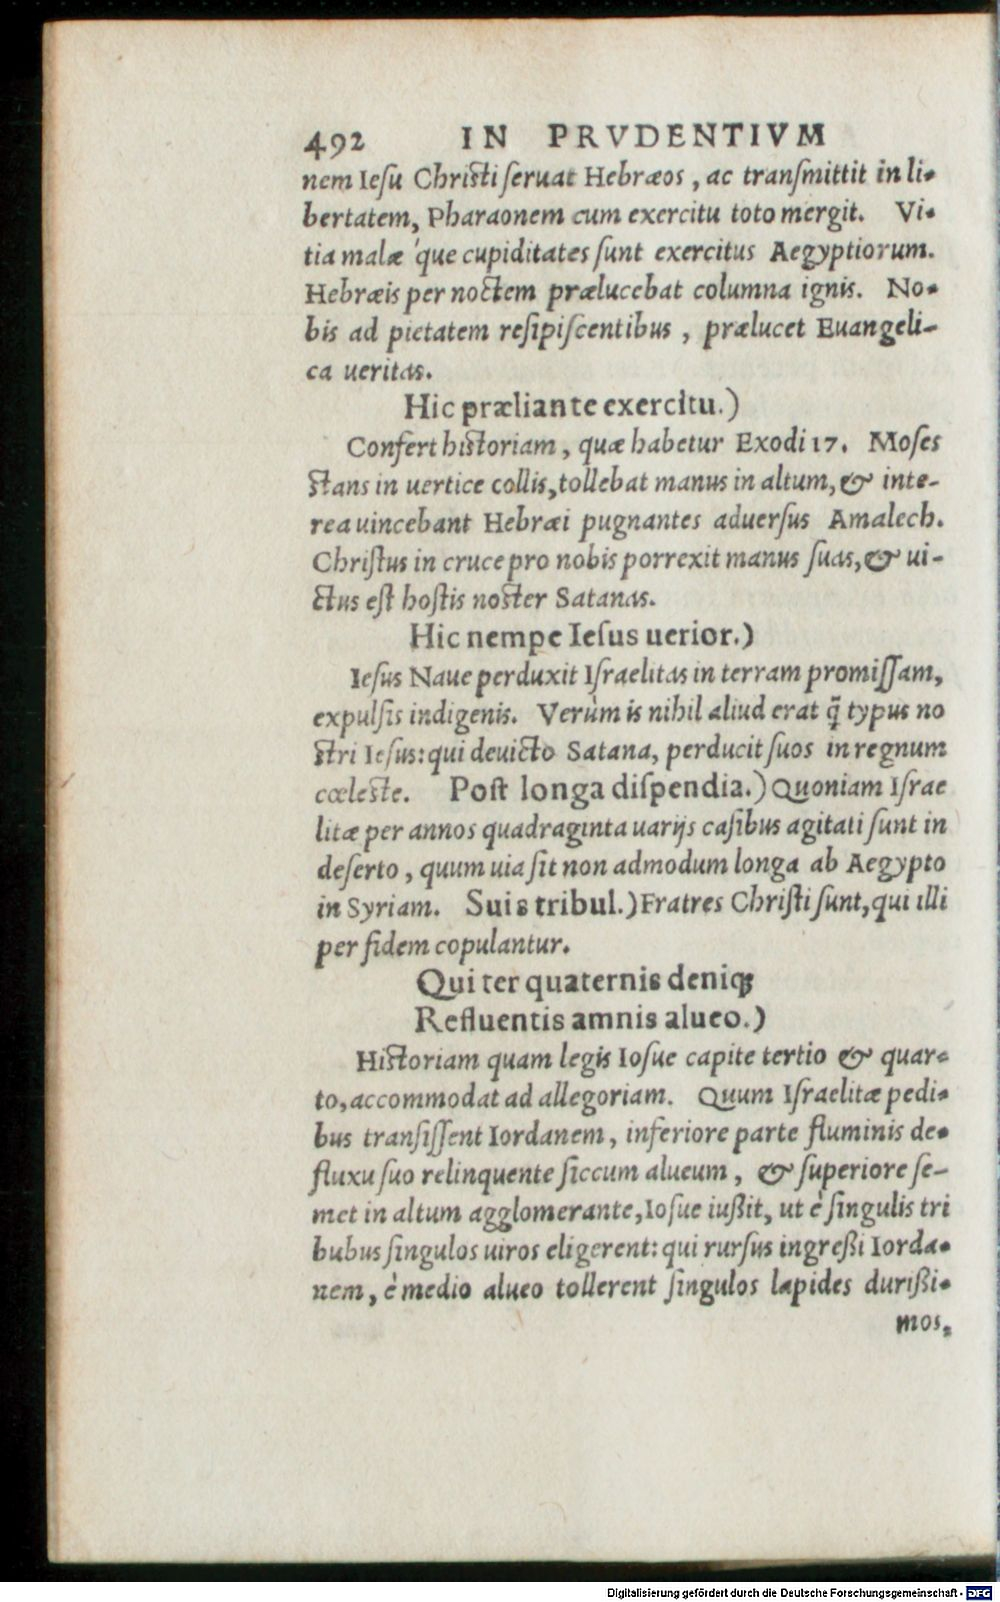 492 IN PRVDENTIVM
nem Iesu Christi seruat Hebræos, ac transmittit in li-
bertatem, Pharaonem cum exercitu toto mergit. Vi-
tia malæ'que cupiditates sunt exercitus Aegyptiorum.
Hebræis per noctem prælucebat columna ignis. No-
bis ad pietatem resipiscentibus, prælucet Euangeli-
ca ueritas.
Hic præliante exercitu.)
Confert historiam, quæ habetur Exodi 17. Moses
stans in uertice collis, tollebat manus in altum, & inte-
rea uincebant Hebræi pugnantes aduersus Amalech.
Christus in cruce pro nobis porrexit manus suas, & ui-
ctus est hostis noster Satanas.
Hic nempe Iesus uerior.)
Iesus Naue perduxit Israelitas in terram promissam,
expulsis indigenis. Verùm is nihil aliud erat q̃ typus no
stri Iesus: qui deuicto Satana, perducit suos in regnum
cœleste. Post longa dispendia.) Quoniam Israe
litæ per annos quadraginta uarijs casibus agitati sunt in
deserto, quum uia sit non admodum longa ab Aegypto
in Syriam. Suis tribul.) Fratres Christi sunt, qui illi
per fidem copulantur.
Qui ter quaternis deniqꝫ
Refluentis amnis alueo.)
Historiam quam legis Iosue capite tertio & quar-
to, accommodat ad allegoriam. Quum Israelitæ pedi-
bus transissent Iordanem, inferiore parte fluminis de-
fluxu suo relinquente siccum alueum, & superiore se-
met in altum agglomerante, Iosue iußit, ut è singulis tri
bubus singulos uiros eligerent: qui rursus ingreßi Iorda-
nem, è medio alueo tollerent singulos lapides durißi-
mos,
Digitalisierung gefördert durch die Deutsche Forschungsgemeinschaft - DFG